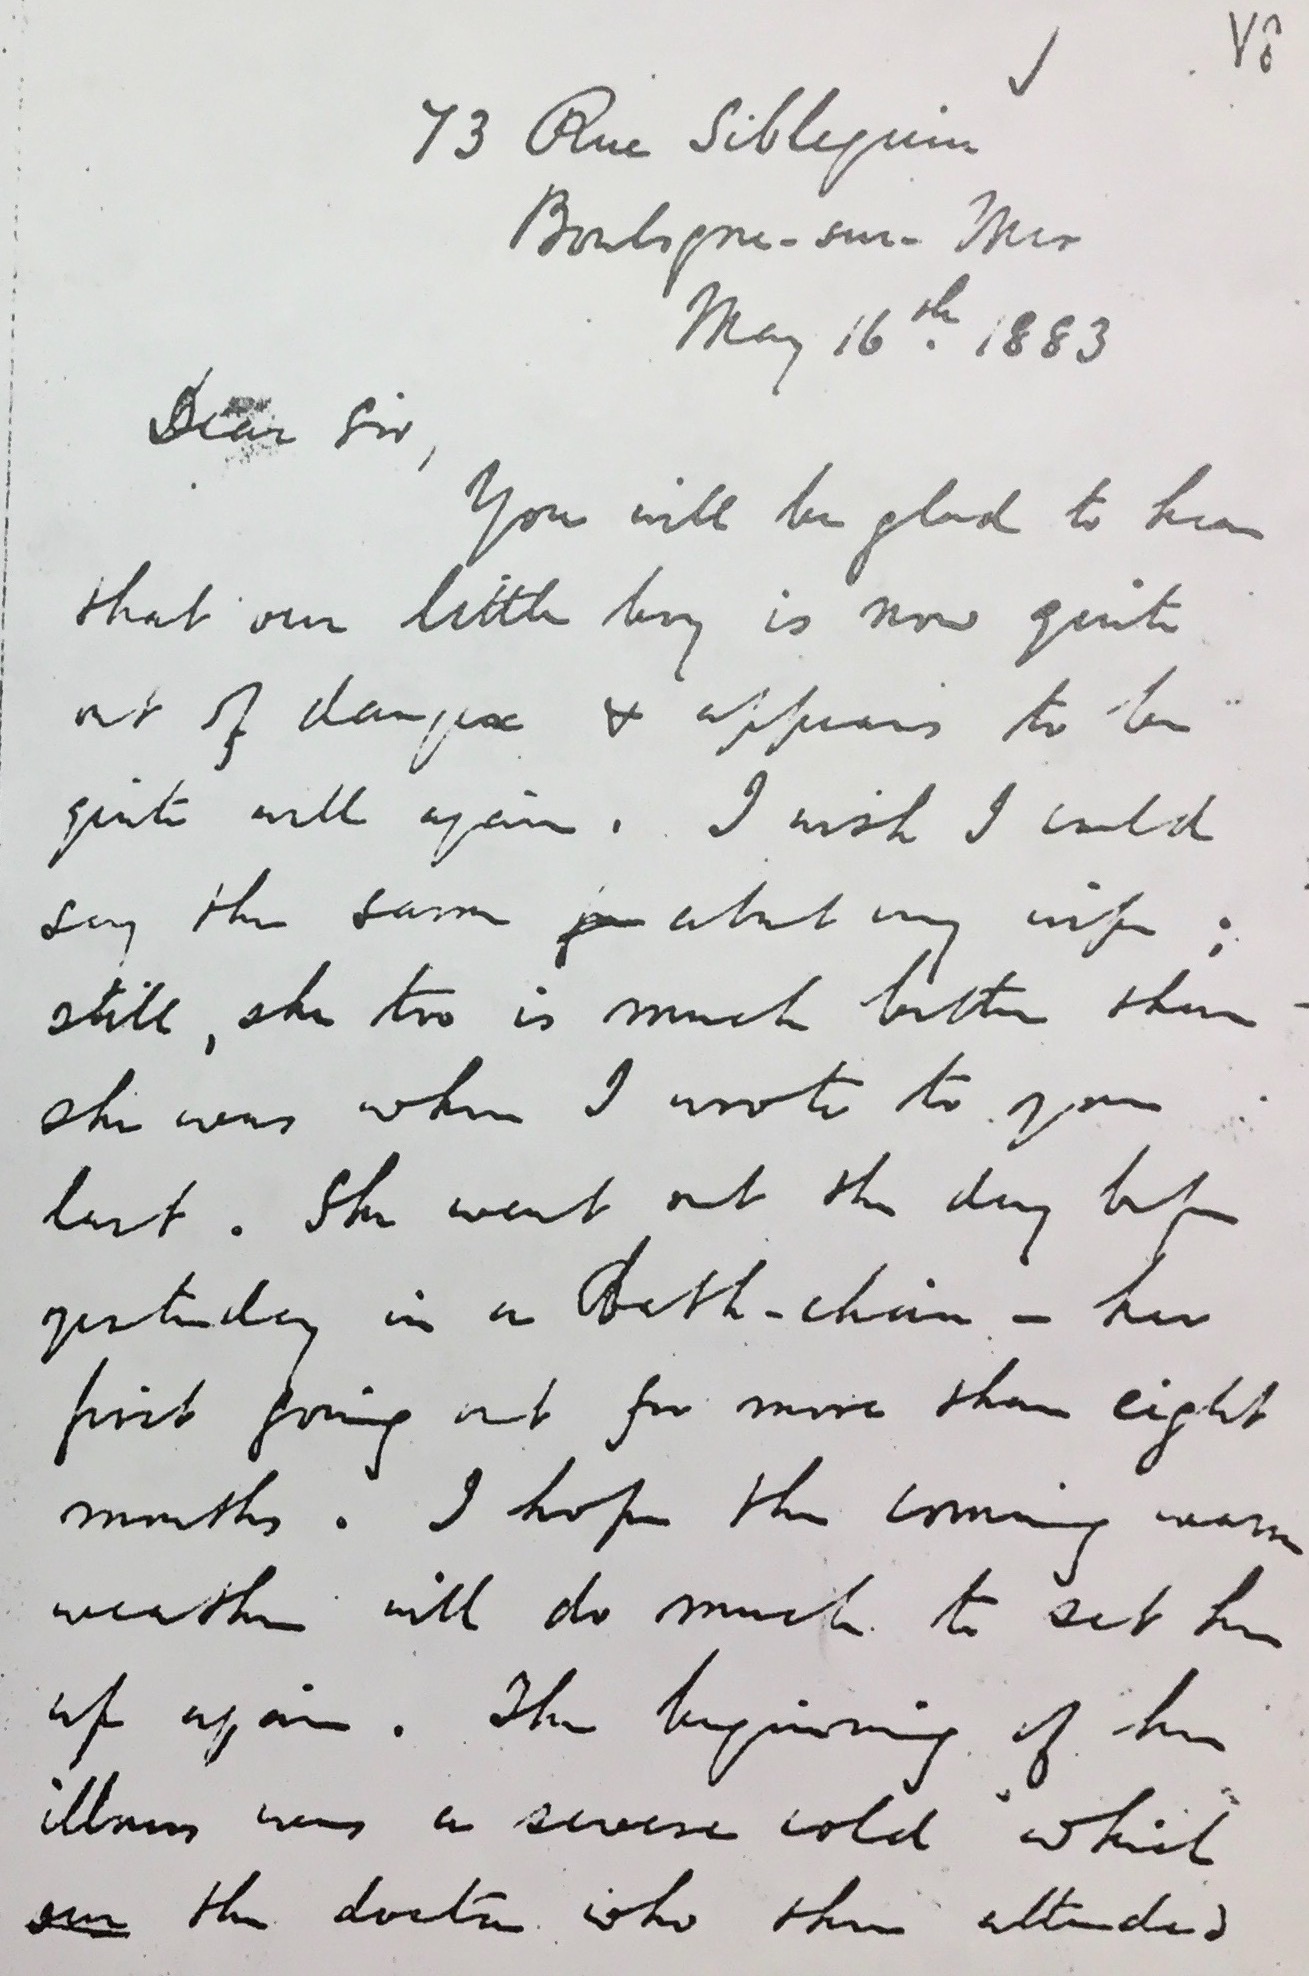 V8
73 Rue Siblequin
Boulogne-sur-Mer
May 16th. 1883
Dear Sir,
You will be glad to hear
that our little boy is now quite
out of danger & appears to be
quite well again. I wish I could
say the same about my wife;
still, she too is much better than
she was when I wrote to you
last. She went out the day before
yesterday in a Bath-chair - her
first going out for more than eight
months. I hope the coming warm
weather will do much to set her
up again. The beginning of her
illness was a severe cold which
the doctor who then attended